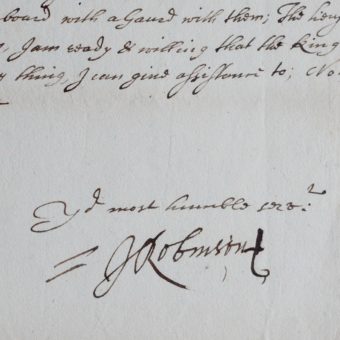 board with a Gaurd with them; The
I am ready & willing that the King
thing, I can give assistance to; No
Yr most humble serv:t
JRobinson